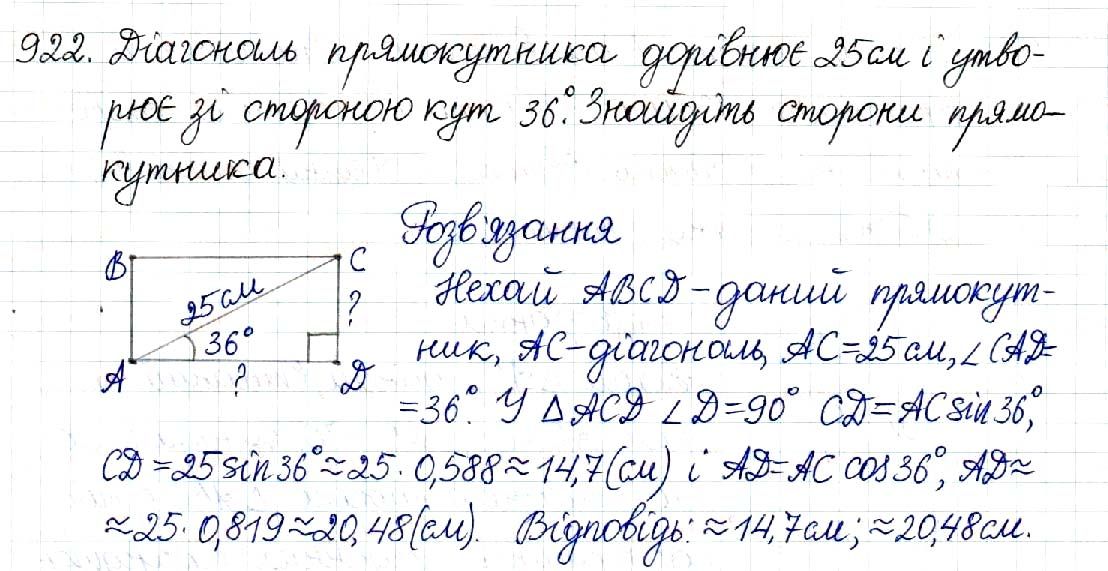 922. Діагональ прямокутника дорівнює 25 см і утво-
рює зі стороною кут 36°. Знайдіть сторони прямо-
кутника.
Розв'язання
B
C
25 см
?
36°
A
?
D
Нехай ABCD – даний прямокут-
ник, AC – діагональ, AC = 25 см, ∠CAD =
= 36°. У △ACD ∠D = 90° CD = AC sin 36°,
CD = 25 sin 36° ≈ 25 · 0,588 ≈ 14,7 (см) і AD = AC cos 36°, AD ≈
≈ 25 · 0,819 ≈ 20,48 (см). Відповідь: ≈ 14,7 см; ≈ 20,48 см.